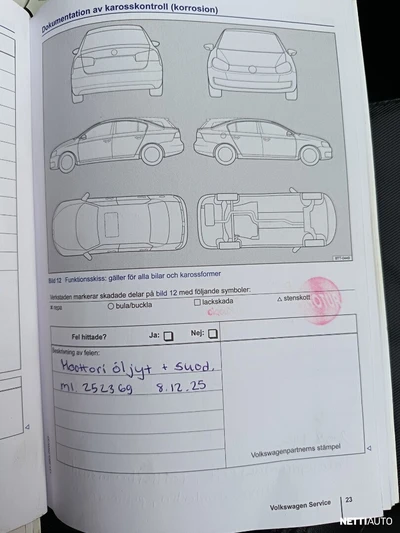 Dokumentation av karosskontroll (korrosion)
Bild 12 Funktionsskiss: gäller för alla bilar och karossformer
Verkstaden markerar skadade delar på bild 12 med följande symboler:
repa ○ bula/buckla □ lackskada △ stenskott
Fel hittade? Ja: □ Nej: □
Beskrivning av felen:
Moottori öljyt + suod.
ml. 252369 8.12.25
Volkswagenpartnerns stämpel
Volkswagen Service 23
NETTIAUTO